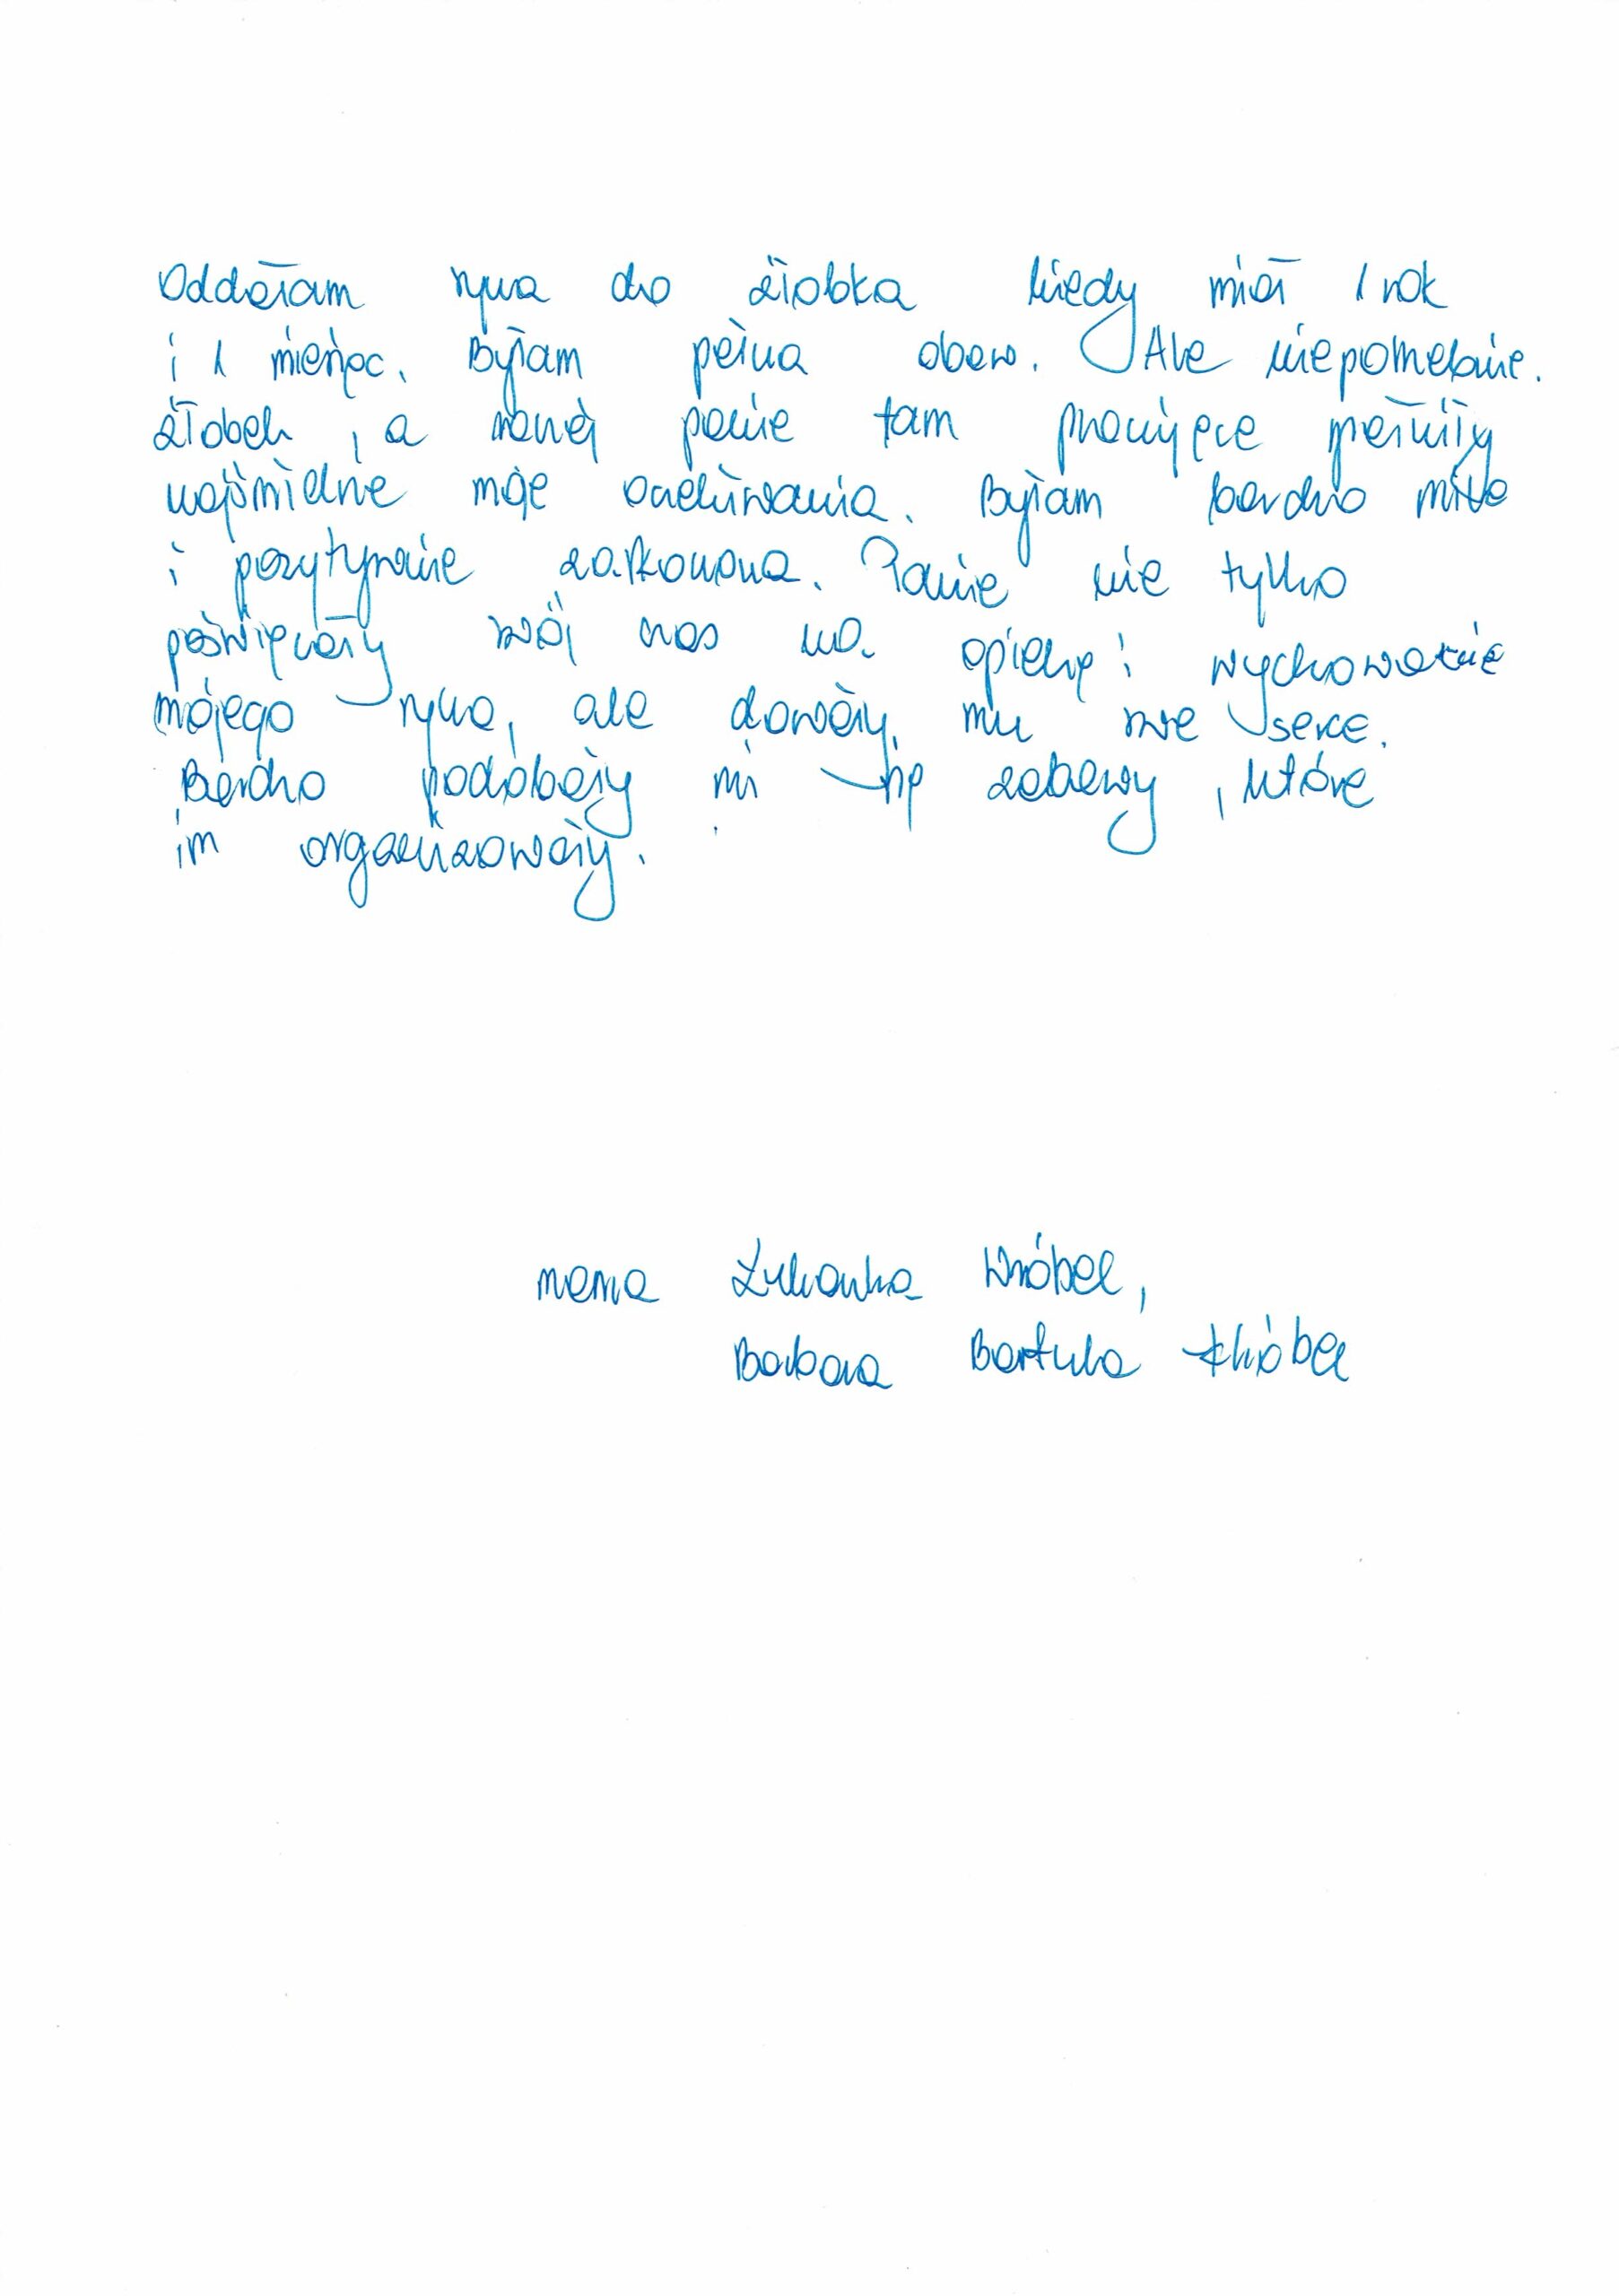 Oddałam syna do żłobka kiedy miał 1 rok
i 1 miesiąc. Byłam pełna obaw. Ale niepotrzebnie.
Żłobek, a raczej panie tam pracujące spełniły
najśmielsze moje oczekiwania. Byłam bardzo mile
i pozytywnie zaskoczona. Panie nie tylko
poświęcały swój czas na opiekę i wychowanie
mojego syna, ale dawały mu swe serce.
Bardzo podobały mi się zabawy, które
im organizowały.
mama Wróbel,
Barbara Wróbel